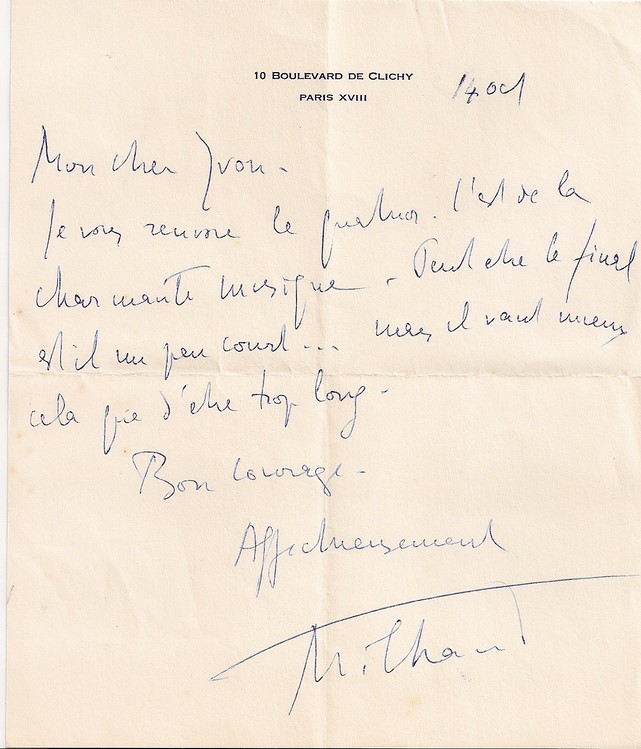 10 BOULEVARD DE CLICHY
PARIS XVIII
14 oct
Mon cher Yvon -
Je vous renvoie le quatuor. C'est de la
charmante musique - Peut être le final
est il un peu court... mais il vaut mieux
cela que d'être trop long -
Bon courage -
Affectueusement
Milhaud